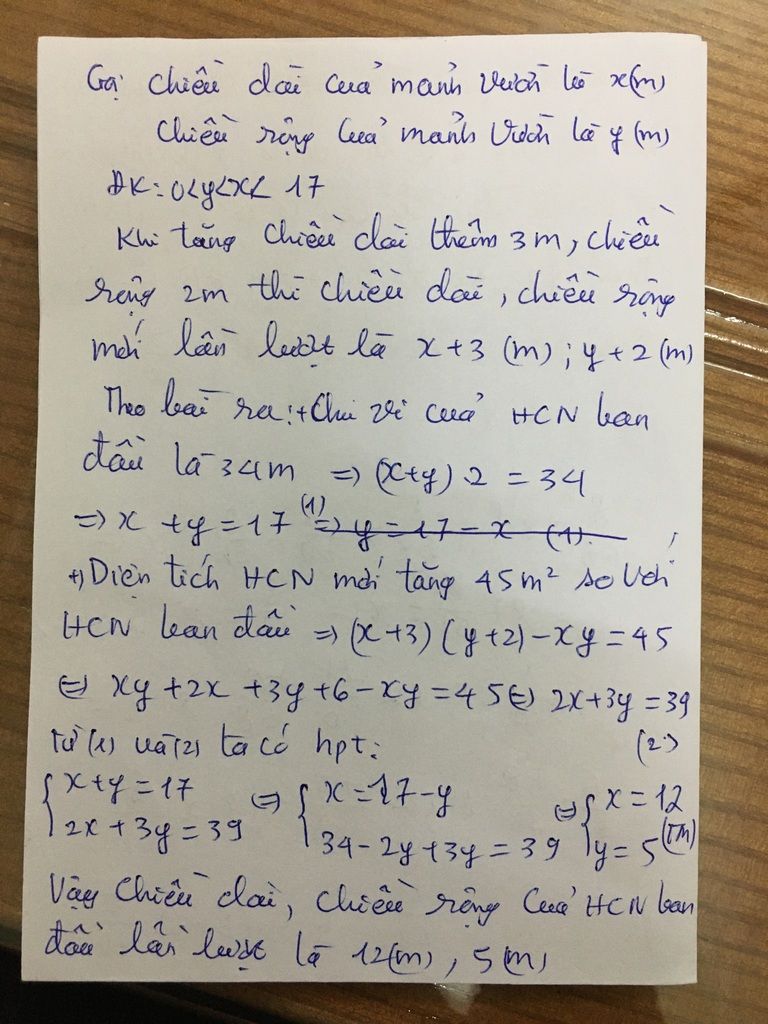 Gọi chiều dài của mảnh vườn là x(m)
chiều rộng của mảnh vườn là y (m)
ĐK: 0<y<x< 17
Khi tăng chiều dài thêm 3m, chiều
rộng 2m thì chiều dài, chiều rộng
mới lần lượt là x+3 (m); y+2 (m)
Theo bài ra: + Chu vi của HCN ban
đầu là 34m => (x+y).2 = 34
=> x + y = 17 (1) => y = 17 - x (1).
+) Diện tích HCN mới tăng 45m² so với
HCN ban đầu => (x+3)(y+2)-xy = 45
<=> xy +2x +3y+6-xy = 45 <=> 2x+3y = 39
Từ (1) và (2) ta có hpt: (2)
{ x+y = 17 <=> { x = 17-y <=> { x = 12
2x+3y = 39 34-2y+3y = 39 y = 5 (TM)
Vậy chiều dài, chiều rộng của HCN ban
đầu lần lượt là 12(m), 5(m)